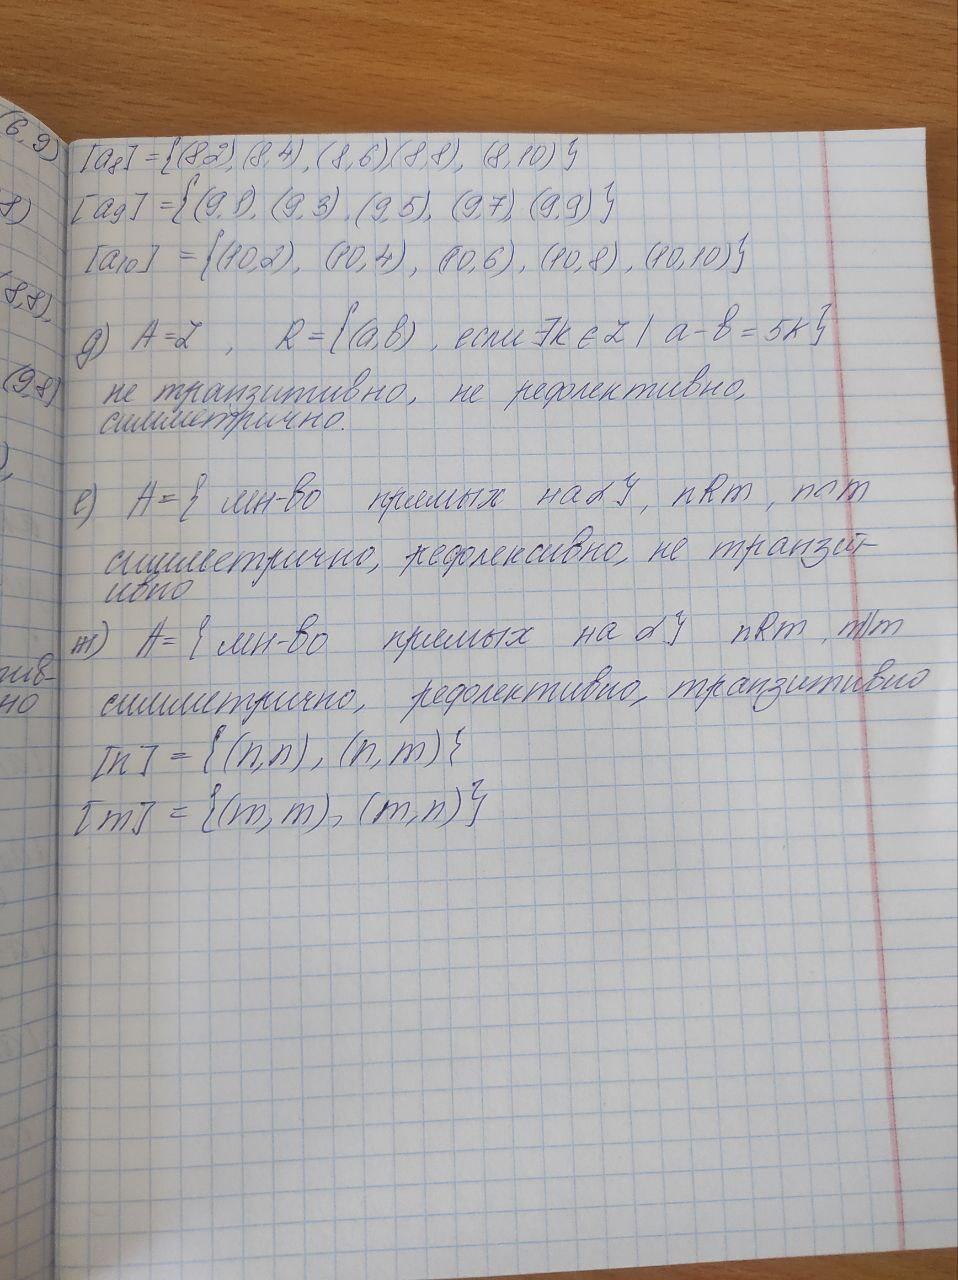 [a8] = {(8,2), (8,4), (8,6)(8,8), (8,10)}
[a9] = {(9,1), (9,3), (9,5), (9,7), (9,9)}
[a10] = {(10,2), (10,4), (10,6), (10,8), (10,10)}
д) A=Z, R={(a,b), если ∃k∈Z | a-b=5k}
не транзитивно, не рефлективно,
симметрично.
е) A={мн-во прямых на α}, nRm, n∩m
симметрично, рефлексивно, не транзит-
ивно
ж) A={мн-во прямых на α} nRm, n||m
симметрично, рефлективно, транзитивно
[n] = {(n,n), (n,m)}
[m] = {(m,m), (m,n)}
(6,9)
8)
8,8),
(9,8)
),
тив-
но